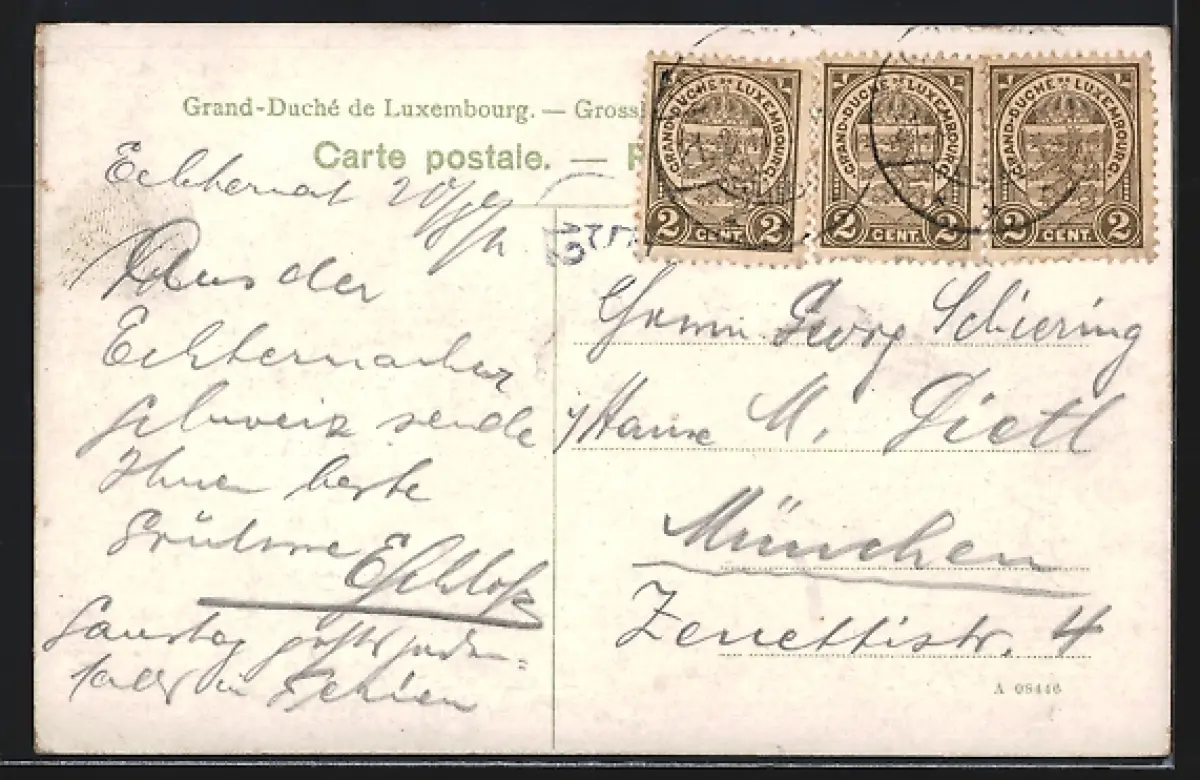 Grand-Duché de Luxembourg. — Gross
Carte postale. —
GRAND-DUCHÉ DE LUXEMBOURG.
2 CENT. 2
GRAND-DUCHÉ DE LUXEMBOURG.
2 CENT. 2
GRAND-DUCHÉ DE LUXEMBOURG.
2 CENT. 2
Echternach
Aus der
Echternacher
Schweiz sende
Ihnen beste
Grüsse
ESchloß
Samstag
in
Herrn Georg Schiering
M. Dietl
München
Zenettistr. 4
A 08446